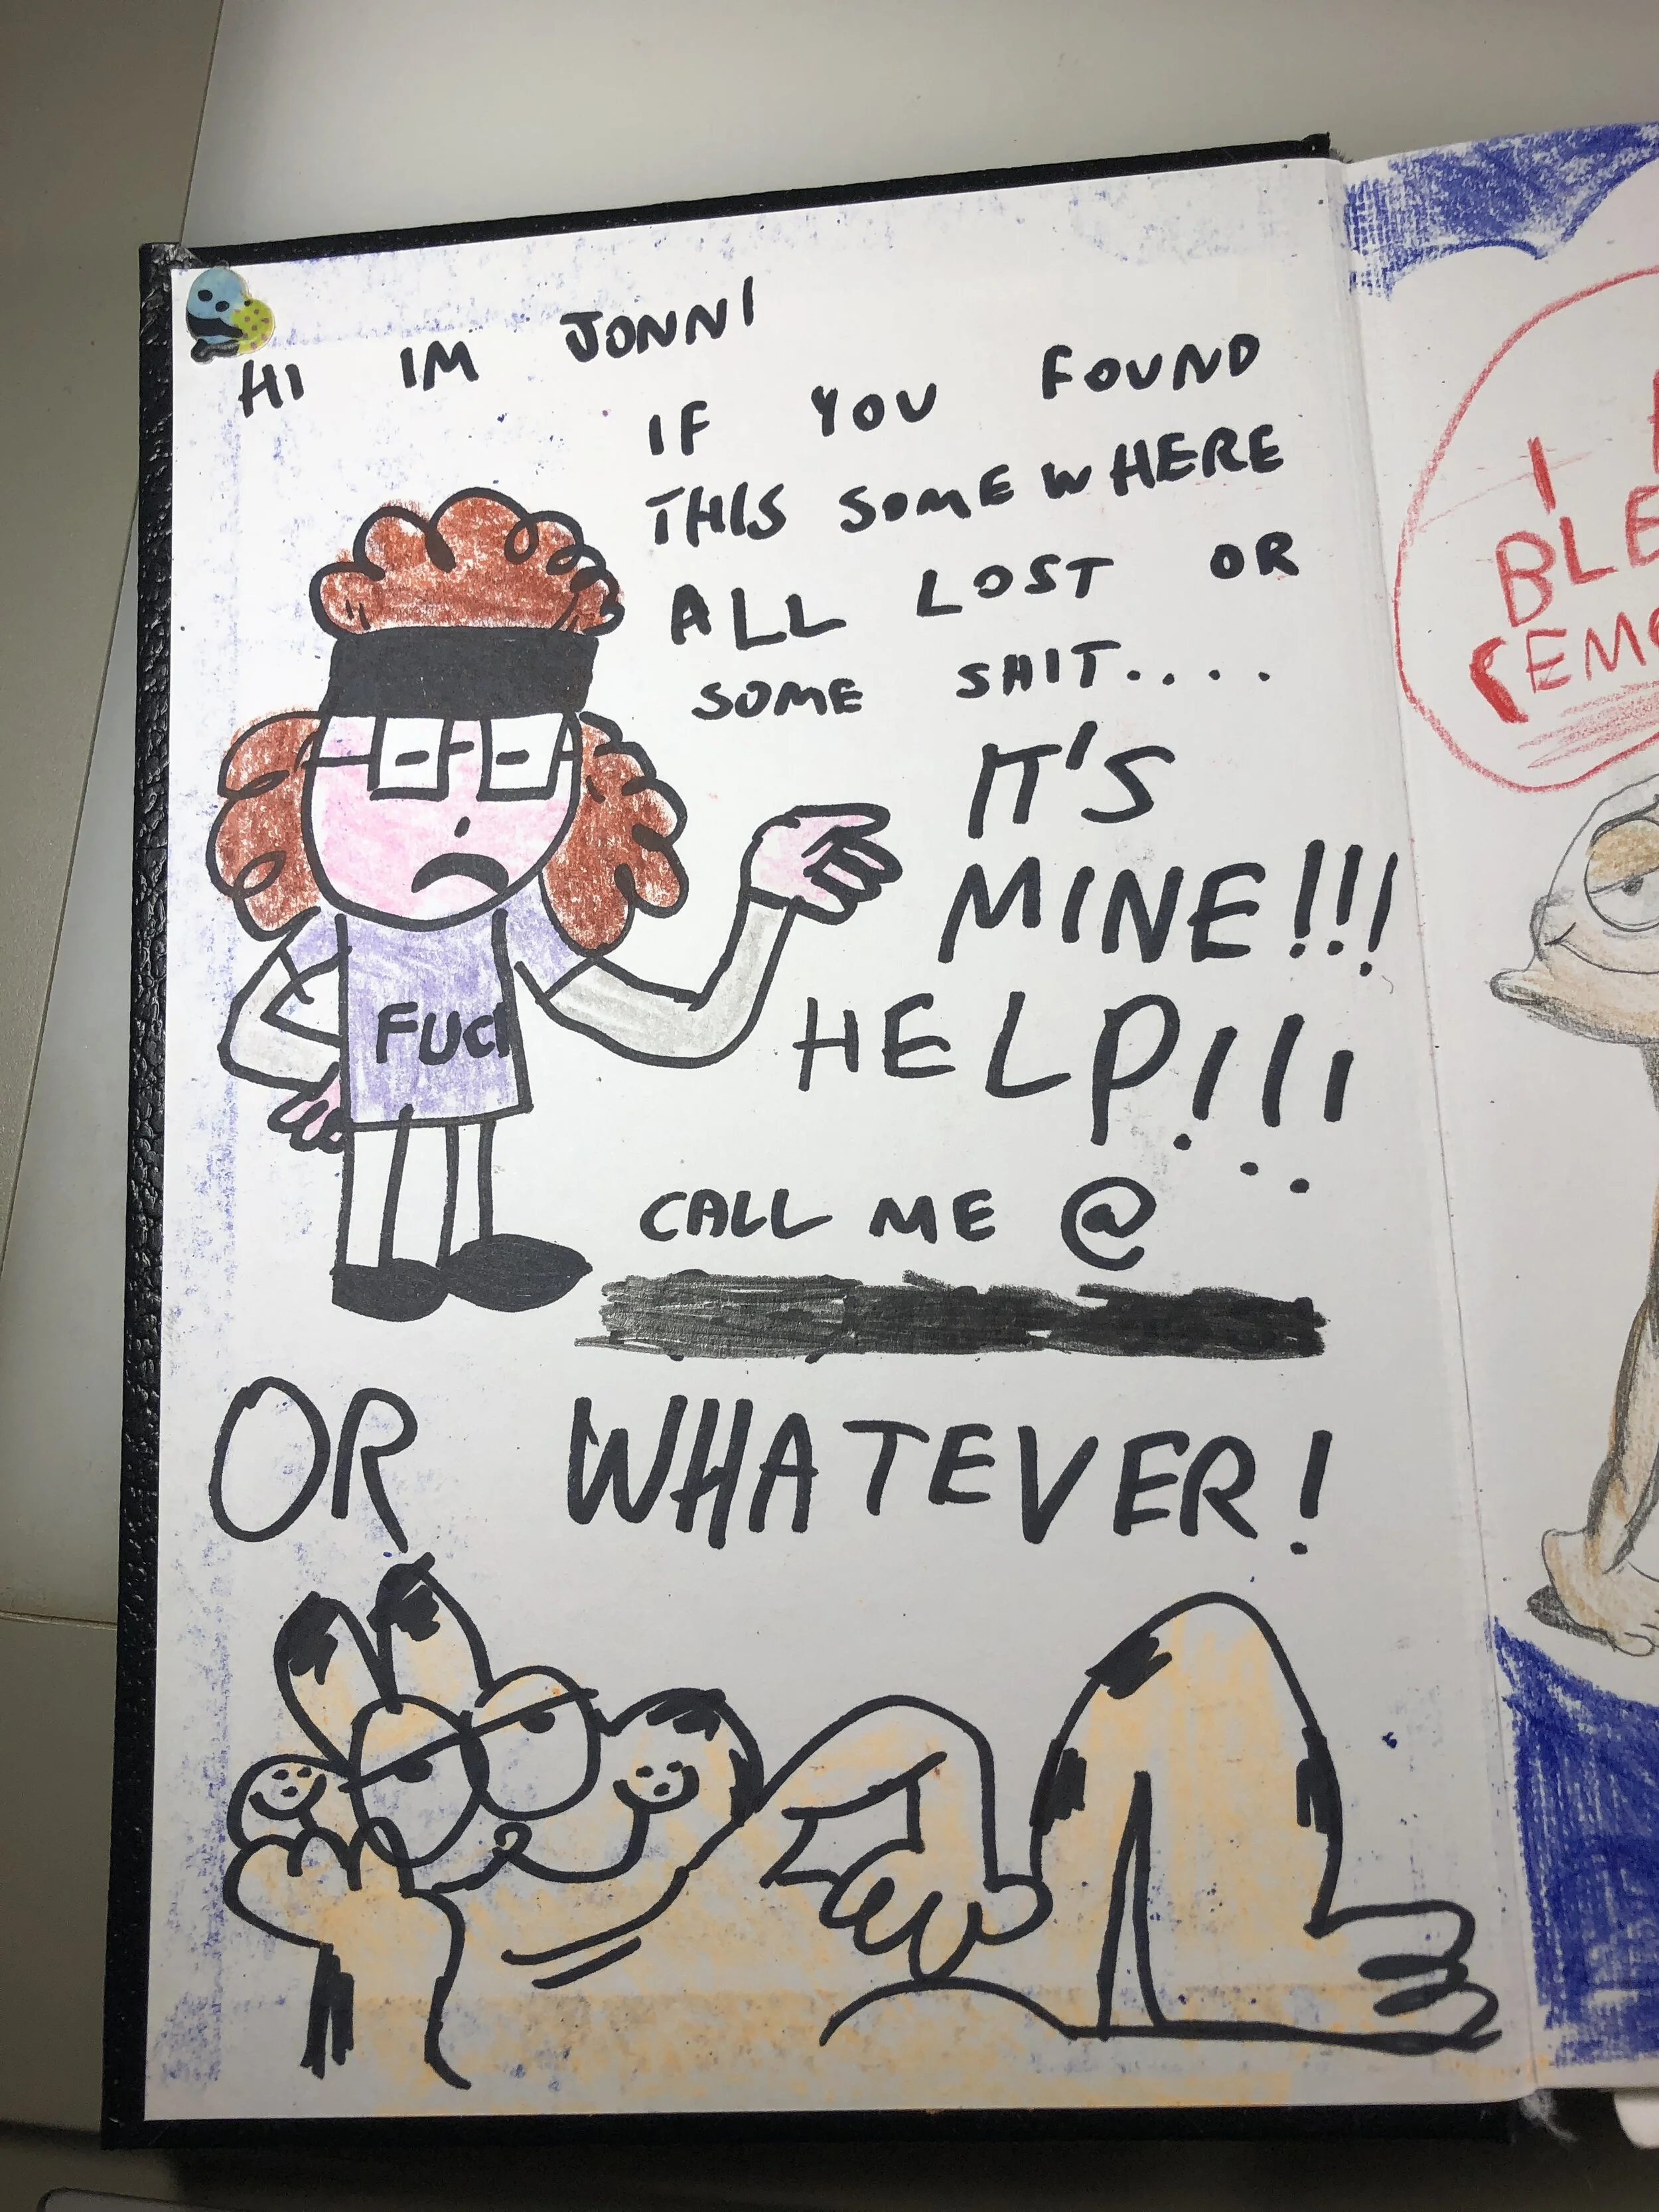 HI IM JONNI
IF YOU FOUND
THIS SOMEWHERE
ALL LOST OR
SOME SHIT....
IT'S
MINE!!!
HELP!!!
CALL ME @
OR WHATEVER!
FUC
I
BLE
EMO